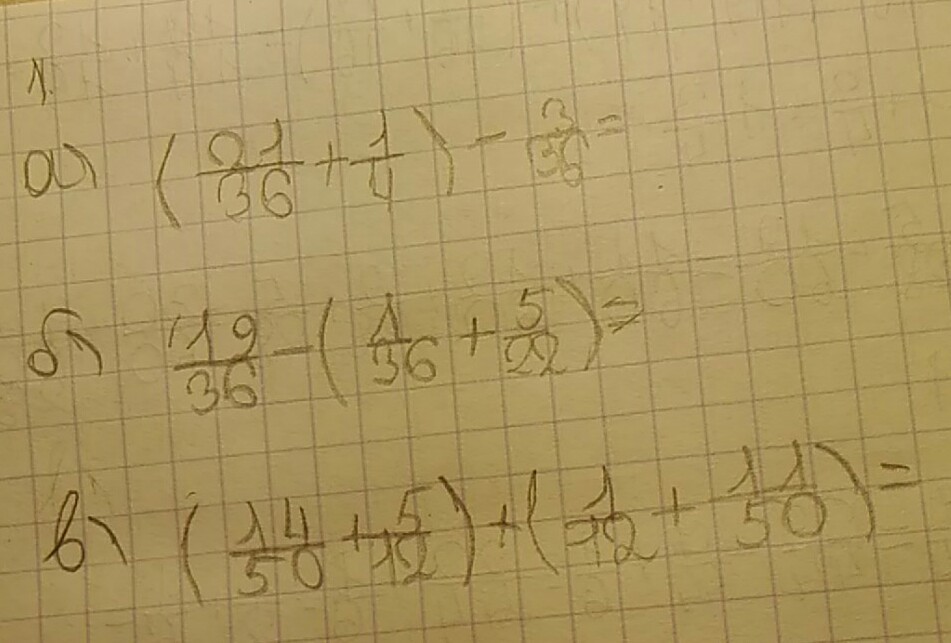 1.
а) (21/36 + 1/4) - 3/36 =
б) 19/36 - (1/36 + 5/22) =
в) (14/50 + 5/12) + (1/12 + 11/50) =